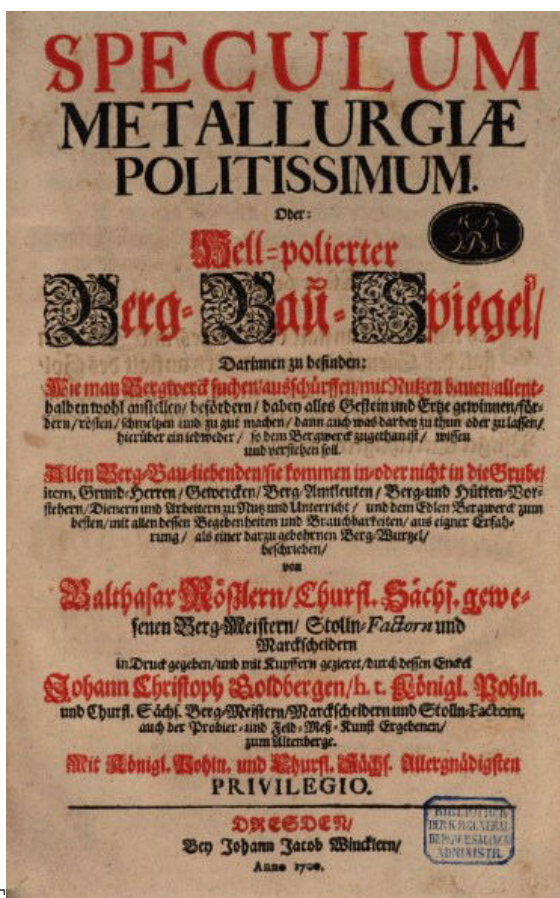 SPECULUM
METALLURGIÆ
POLITISSIMUM.
Oder:
Hell-polierter
Berg-Bau-Spiegel/
Darinnen zu befinden:
Wie man Bergwerck suchen/ausschürffen/mit Nutzen bauen/allent-
halben wohl anstellen/befördern/dabey alles Gestein und Ertze gewinnen/för-
dern/rösten/schmeltzen und zu gut machen/dann auch was darbey zu thun oder zu lassen/
hierüber ein iedweder/so dem Bergwerck zugethan ist/wissen
und verstehen soll.
Allen Berg-Bau-liebenden/sie kommen in/oder nicht in die Grube/
item, Grund-Herren/Gewercken/Berg-Amtleuten/Berg-und Hütten-Vor-
stehern/Dienern und Arbeitern zu Nutz und Unterricht/und dem Edlen Bergwerck zum
besten/mit allen dessen Begebenheiten und Brauchbarkeiten/aus eigner Erfah-
rung/als einer darzu gebohrnen Berg-Wurzel/
beschrieben/
von
Balthasar Rößlern/Churfl. Sächs. gewe-
senen Berg-Meistern/Stolln-Factorn und
Marckscheidern
in Druck gegeben/und mit Kupffern gezieret/durch dessen Enckel
Johann Christoph Goldbergen/h. t. Königl. Pohln.
und Churfl. Sächs. Berg-Meistern/Marckscheidern und Stolln-Factorn,
auch der Probier-und Feld-Meß-Kunst Ergebenen/
zum Altenberge.
Mit Königl. Pohln. und Churfl. Sächs. Allergnädigsten
PRIVILEGIO.
DRESDEN/
Bey Johann Jacob Wincklern/
Anno 1700.
BIBLIOTHEK
ADMINISTR.